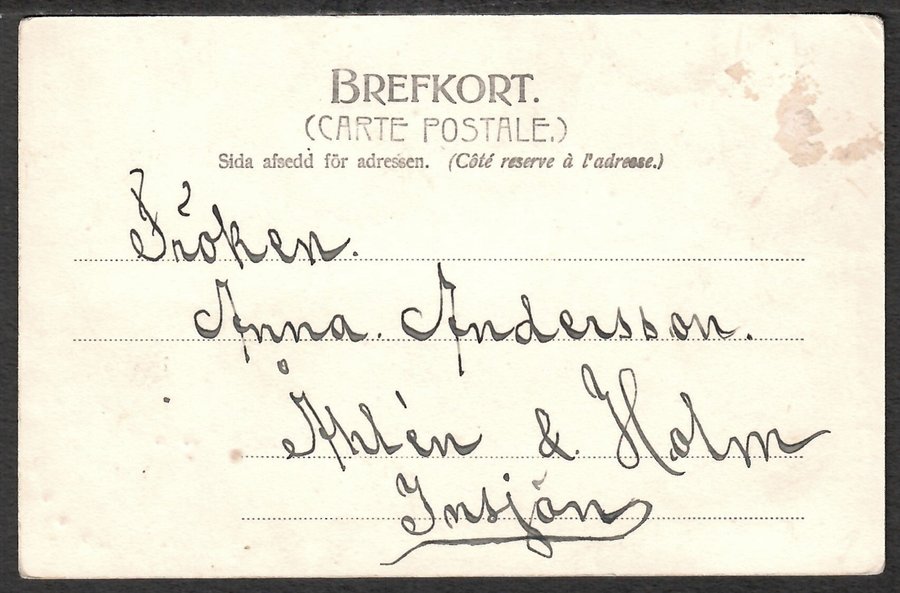 BREFKORT.
(CARTE POSTALE.)
Sida afsedd för adressen. (Côté reserve à l'adresse.)
Fröken.
Anna. Andersson.
Åhlén & Holm
Insjön